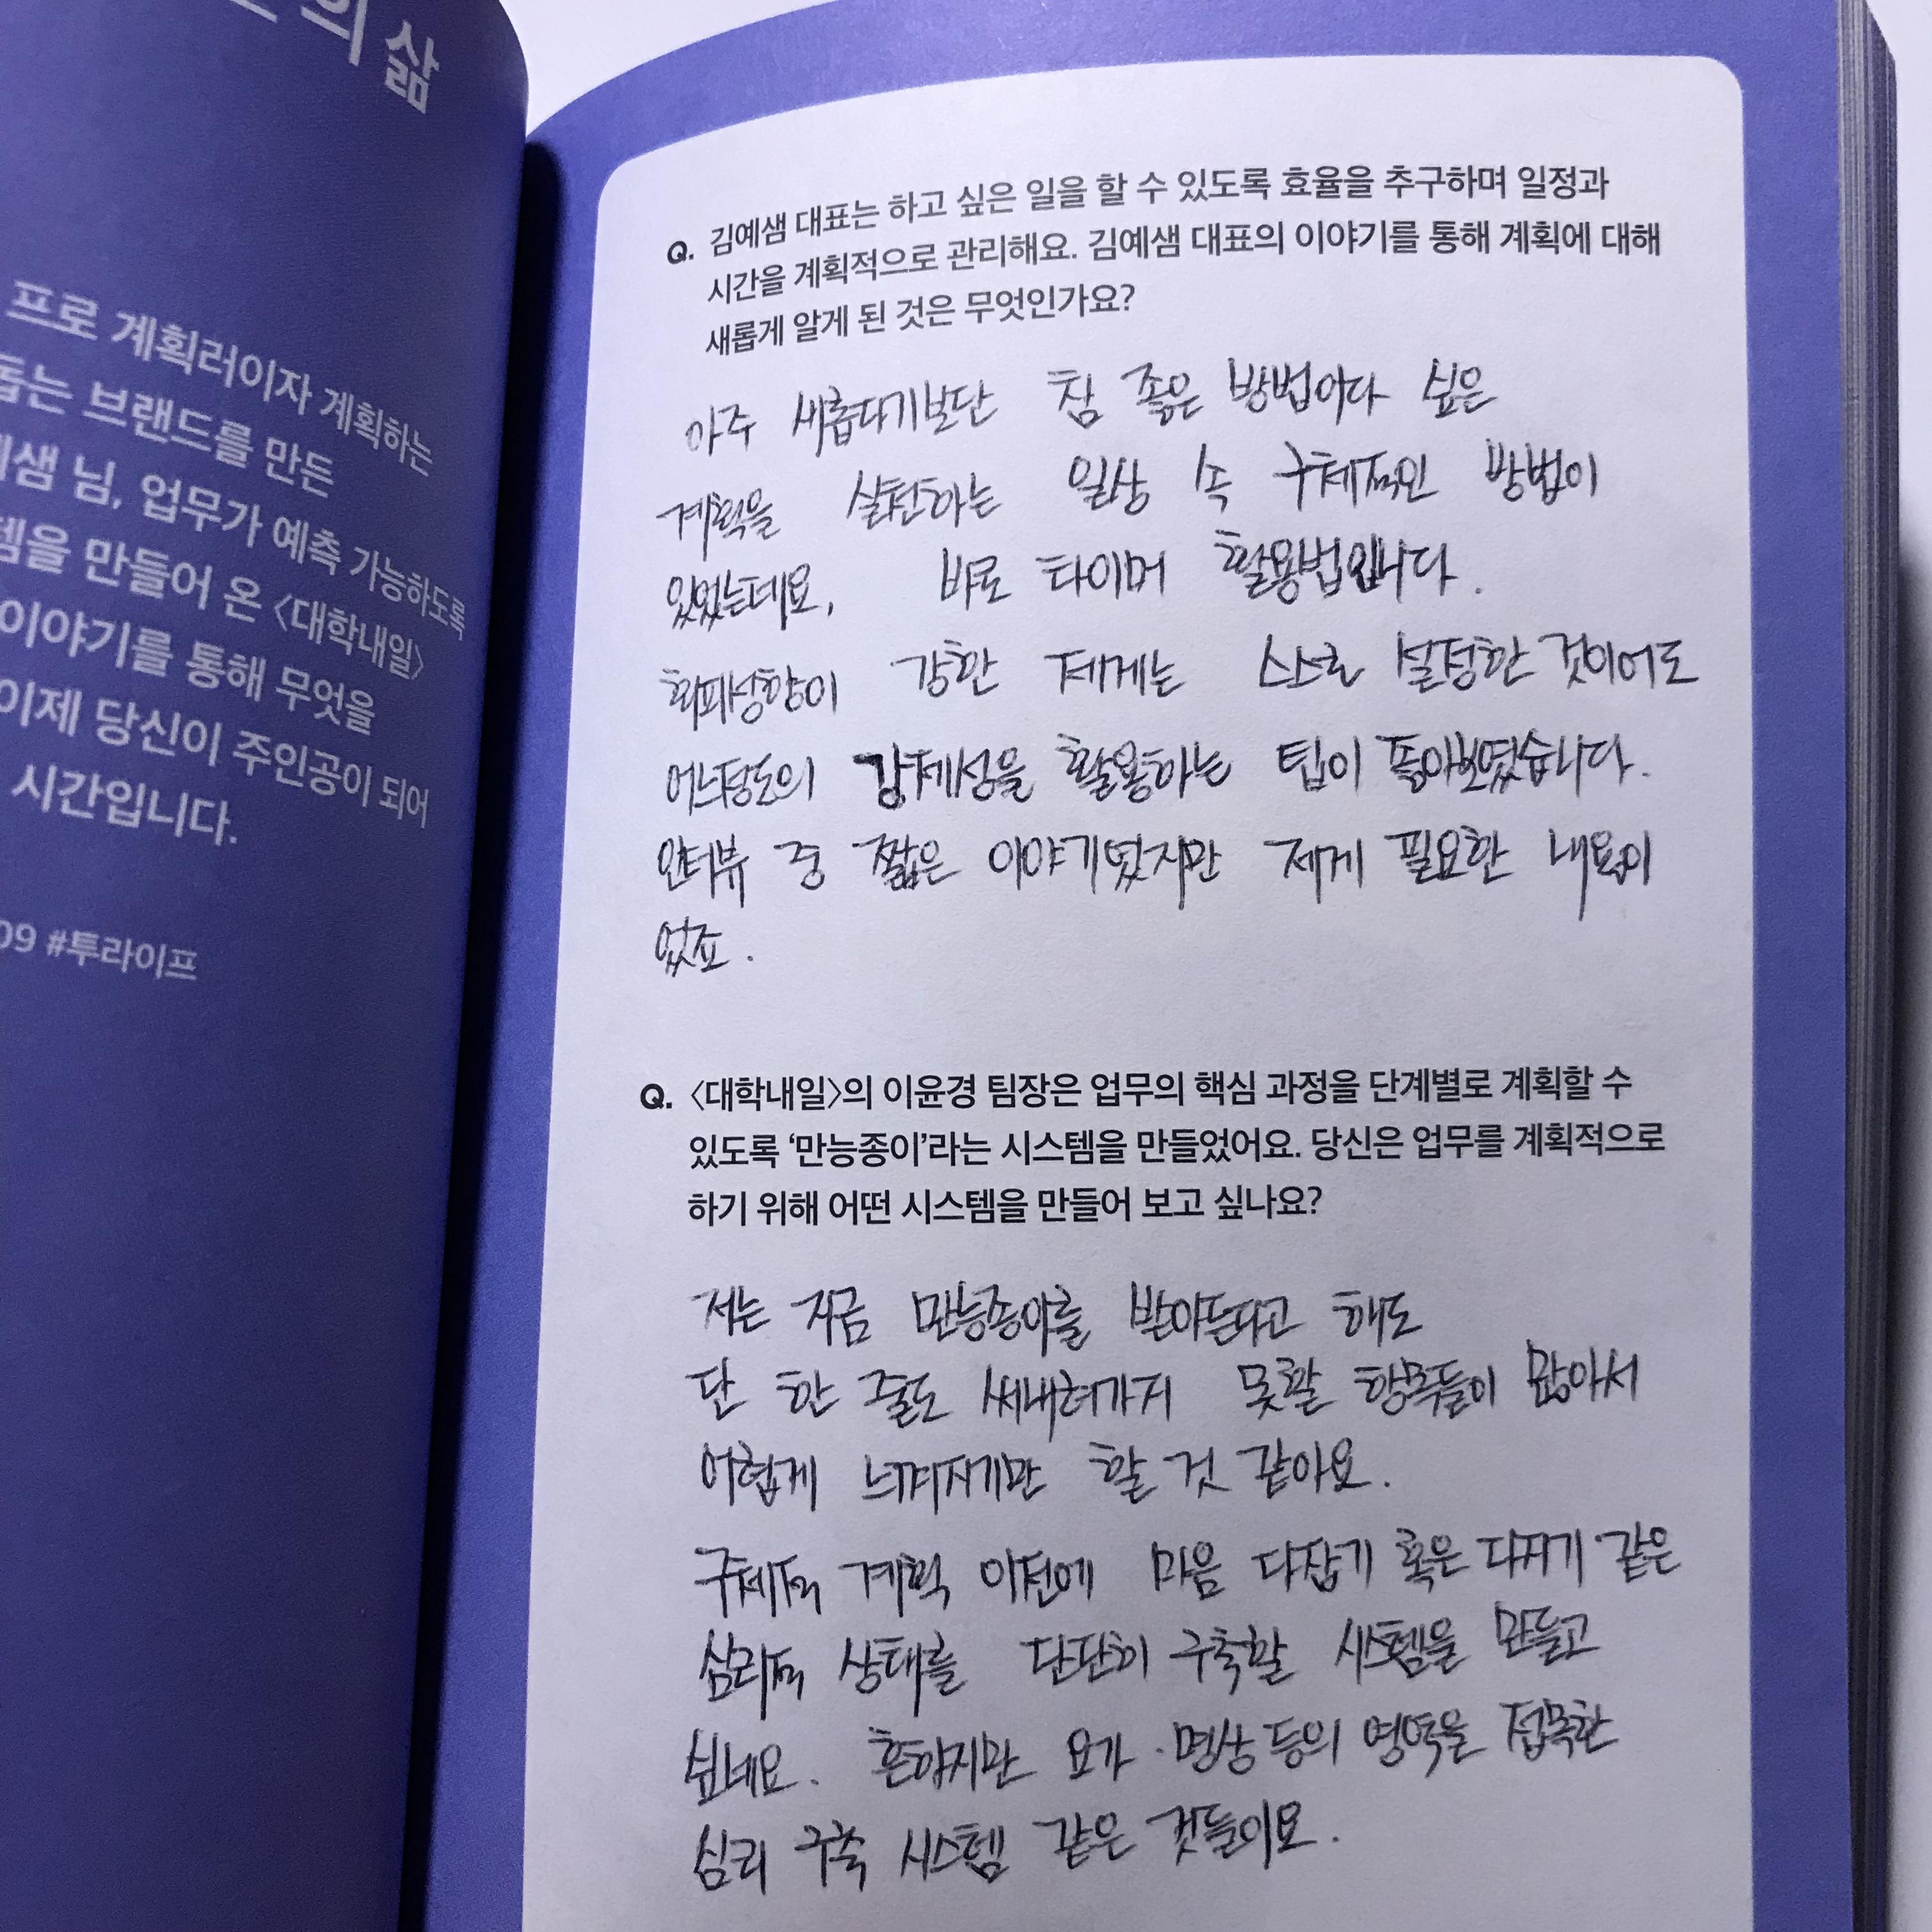 의 삶
프로 계획러이자 계획하는
돕는 브랜드를 만든
예샘 님, 업무가 예측 가능하도록
템을 만들어 온 〈대학내일〉
이야기를 통해 무엇을
이제 당신이 주인공이 되어
시간입니다.
09 #투라이프
Q. 김예샘 대표는 하고 싶은 일을 할 수 있도록 효율을 추구하며 일정과
시간을 계획적으로 관리해요. 김예샘 대표의 이야기를 통해 계획에 대해
새롭게 알게 된 것은 무엇인가요?
아주 새롭다기보단 참 좋은 방법이다 싶은
계획을 실천하는 일상 속 구체적인 방법이
있었는데요, 바로 타이머 활용법입니다.
회피성향이 강한 제게는 스스로 설정한 것이어도
어느정도의 강제성을 활용하는 팁이 좋아보였습니다.
인터뷰 중 짧은 이야기였지만 제게 필요한 내용이
었죠.
Q. 〈대학내일〉의 이윤경 팀장은 업무의 핵심 과정을 단계별로 계획할 수
있도록 ‘만능종이’라는 시스템을 만들었어요. 당신은 업무를 계획적으로
하기 위해 어떤 시스템을 만들어 보고 싶나요?
저는 지금 만능종이를 받아든다고 해도
단 한 줄도 써내려가지 못할 항목들이 많아서
어렵게 느껴지기만 할 것 같아요.
구체적 계획 이전에 마음 다잡기 혹은 다지기 같은
심리적 상태를 단단히 구축할 시스템을 만들고
싶네요. 흔하지만 요가·명상 등의 영역을 접목한
심리 구축 시스템 같은 것들이요.